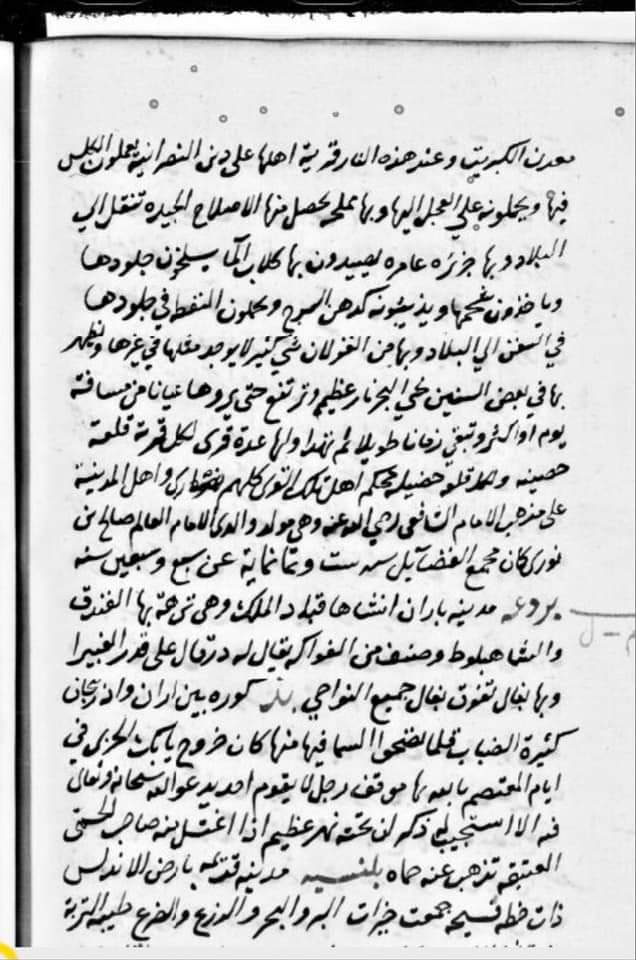 معدن الكبريت وعند هذه النار قرية اهلها على دين النصرانية يعملون الكلس
فيها ويحملونه علي العجل اليها وبها ملحه يحصل منها الاملاح الجيده تنقل الي
البلاد وبها جزيره عامره يصيدون بها كلاب الما يسلخون جلودها
وياخذون شحمها ويذيبونه كدهن السرج ويحملون النفط في جلودها
في السفن الي البلاد وبها من الغزلان شي كثير لا يوجد مثلها في غيرها ويظهر
بها في بعض السنين في البحر نار عظيم وترتفع حتى يروها عيانا من مسافة
يوم او اكثر وتبقي زمانا طويلا ثم تهدا ولها عدة قرى لكل قرية قلعة
حصينه اهل تلك القرى كلهم نصارى واهل المدينة
على مذهب الامام الشافعي رضي الله عنه وهي مولد والدى الامام العالم صالح بن
نورى كان مجمع الفضايل سنه ست وثمانماية عن سبع وسبعين سنه
بروعه مدينه باران انشاها قباد الملك وهى نزهة بها الفندق
والشاهبلوط وصنف من الفواكه يقال له درقال على قدر الغبيرا
وبها بغال تفوق بغال جميع النواحي بذ كوره بين اران واذربجان
كثيرة الضباب قلما تضحوا السما فيها منها كان خروج بابك الخرمى في
ايام المعتصم بالله بها موقف رجل لا يقوم احد يدعو الله سبحانه وتعالى
فيه الا استجيب له ذكر ان تحته نهر عظيم اذا اغتسل منه صاحب الحمى
العتيقة تذهب عنه حماه بلنسيه مدينه قديمه بارض الاندلس
ذات خطه فسيحه جمعت خيرات البر والبحر والزرع والضرع طيبه التربة